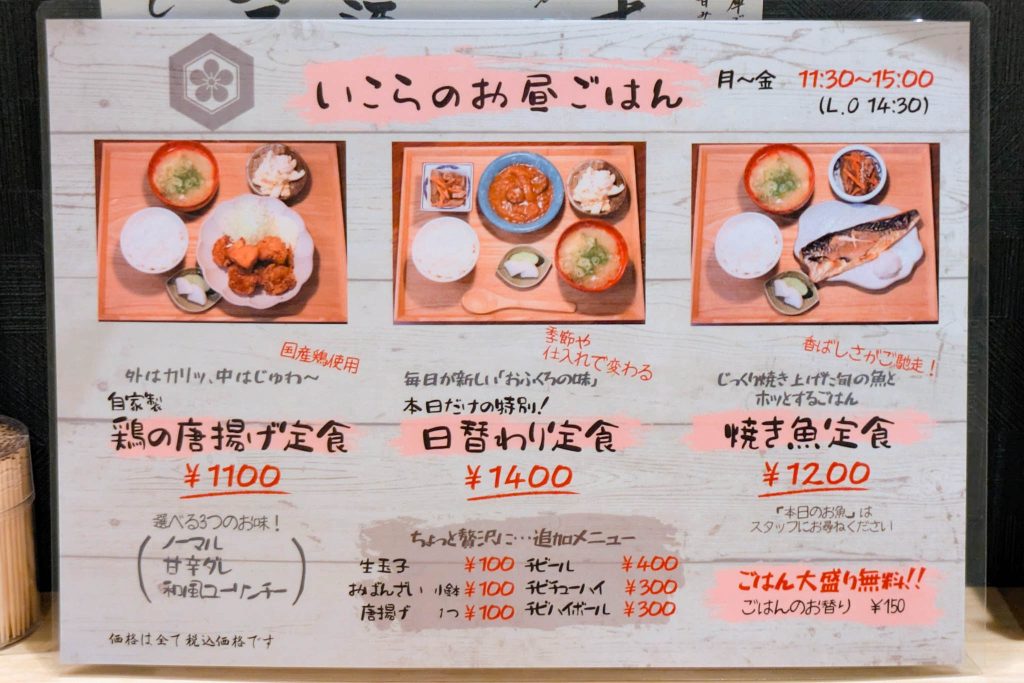 いこらのお昼ごはん
月～金 11:30～15:00
(L.O 14:30)
国産鶏使用
外はカリッ、中はじゅわ～
自家製
鶏の唐揚げ定食
¥1100
選べる3つのお味!
ノーマル
甘辛ダレ
和風ユーリンチー
季節や
仕入れで変わる
毎日が新しい「おふくろの味」
本日だけの特別!
日替わり定食
¥1400
香ばしさがご馳走!
じっくり焼き上げた旬の魚と
ホッとするごはん
焼き魚定食
¥1200
「本日のお魚」は
スタッフにお尋ねください
ちょっと贅沢に…追加メニュー
生玉子 ¥100 チビール ¥400
おばんざい 小鉢 ¥100 チビチューハイ ¥300
唐揚げ 1つ ¥100 チビハイボール ¥300
ごはん大盛り無料!!
ごはんのお替り ¥150
価格は全て税込価格です